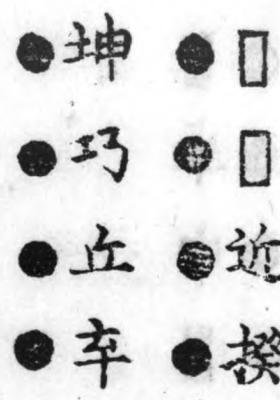 ●▯●▯●近●揆
●坤●巧●丘●车